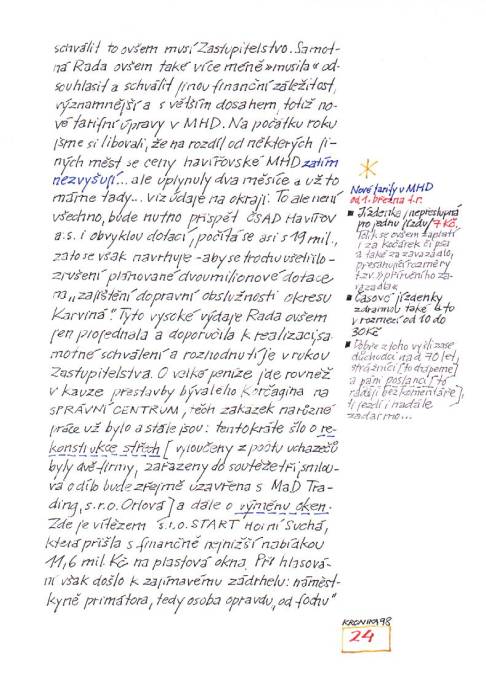 schválit to ovšem musí Zastupitelstvo. Samot-
ná Rada ovšem také více méně »musila« od-
souhlasit a schválit jinou finanční záležitost,
významnější a s větším dosahem, totiž no-
vé tarifní úpravy v MHD. Na počátku roku
jsme si libovali, že na rozdíl od některých ji-
ných měst se ceny havířovské MHD zatím
nezvyšují... ale uplynuly dva měsíce a už to
máme tady... viz údaje na okraji. To ale není
všechno, bude nutno přispět ČSAD Havířov
a.s. i obvyklou dotací, počítá se asi s 19 mil.,
zato se však navrhuje - aby se trochu ušetřilo -
zrušení plánované dvoumilionové dotace
na „zajištění dopravní obslužnosti okresu
Karviná". Tyto vysoké výdaje Rada ovšem
jen projednala a doporučila k realizaci, sa-
motné schválení a rozhodnutí je v rukou
Zastupitelstva. O velké peníze jde rovněž
v kauze přestavby bývalého Korčagina na
SPRÁVNÍ CENTRUM, těch zakázek na různé
práce už bylo a stále jsou: tentokráte šlo o re-
konstrukce střech [vyloučeny z počtu uchazečů
byly dvě firmy, zařazeny do soutěže tři, smlou-
va o dílo bude zřejmě uzavřena s MaD Tra-
ding, s.r.o. Orlová] a dále o výměnu oken.
Zde je vítězem s.r.o. START Horní Suchá,
která přišla s finančně nejnižší nabídkou
11,6 mil. Kč na plastová okna. Při hlasová-
ní však došlo k zajímavému zádrhelu: náměst-
kyně primátora, tedy osoba opravdu „od fochu"
Nové tarify v MHD
od 1. března t.r.
■ Jízdenka, nepřestupná
pro jednu jízdu, 7 Kč.
Tolik se ovšem zaplatí
i za kočárek či psa
a také za zavazadlo,
přesahující rozměry
t.zv. »příručního za-
vazadla«
■ Časové jízdenky
zdražily také a to
v rozmezí od 10 do
30 Kč
■ Dobře z toho vyšli zase
důchodci nad 70 let,
strážníci [to chápeme]
a páni poslanci [to
raději bez komentáře],
ti jezdí i nadále
zadarmo...
KRONIKA 98
24